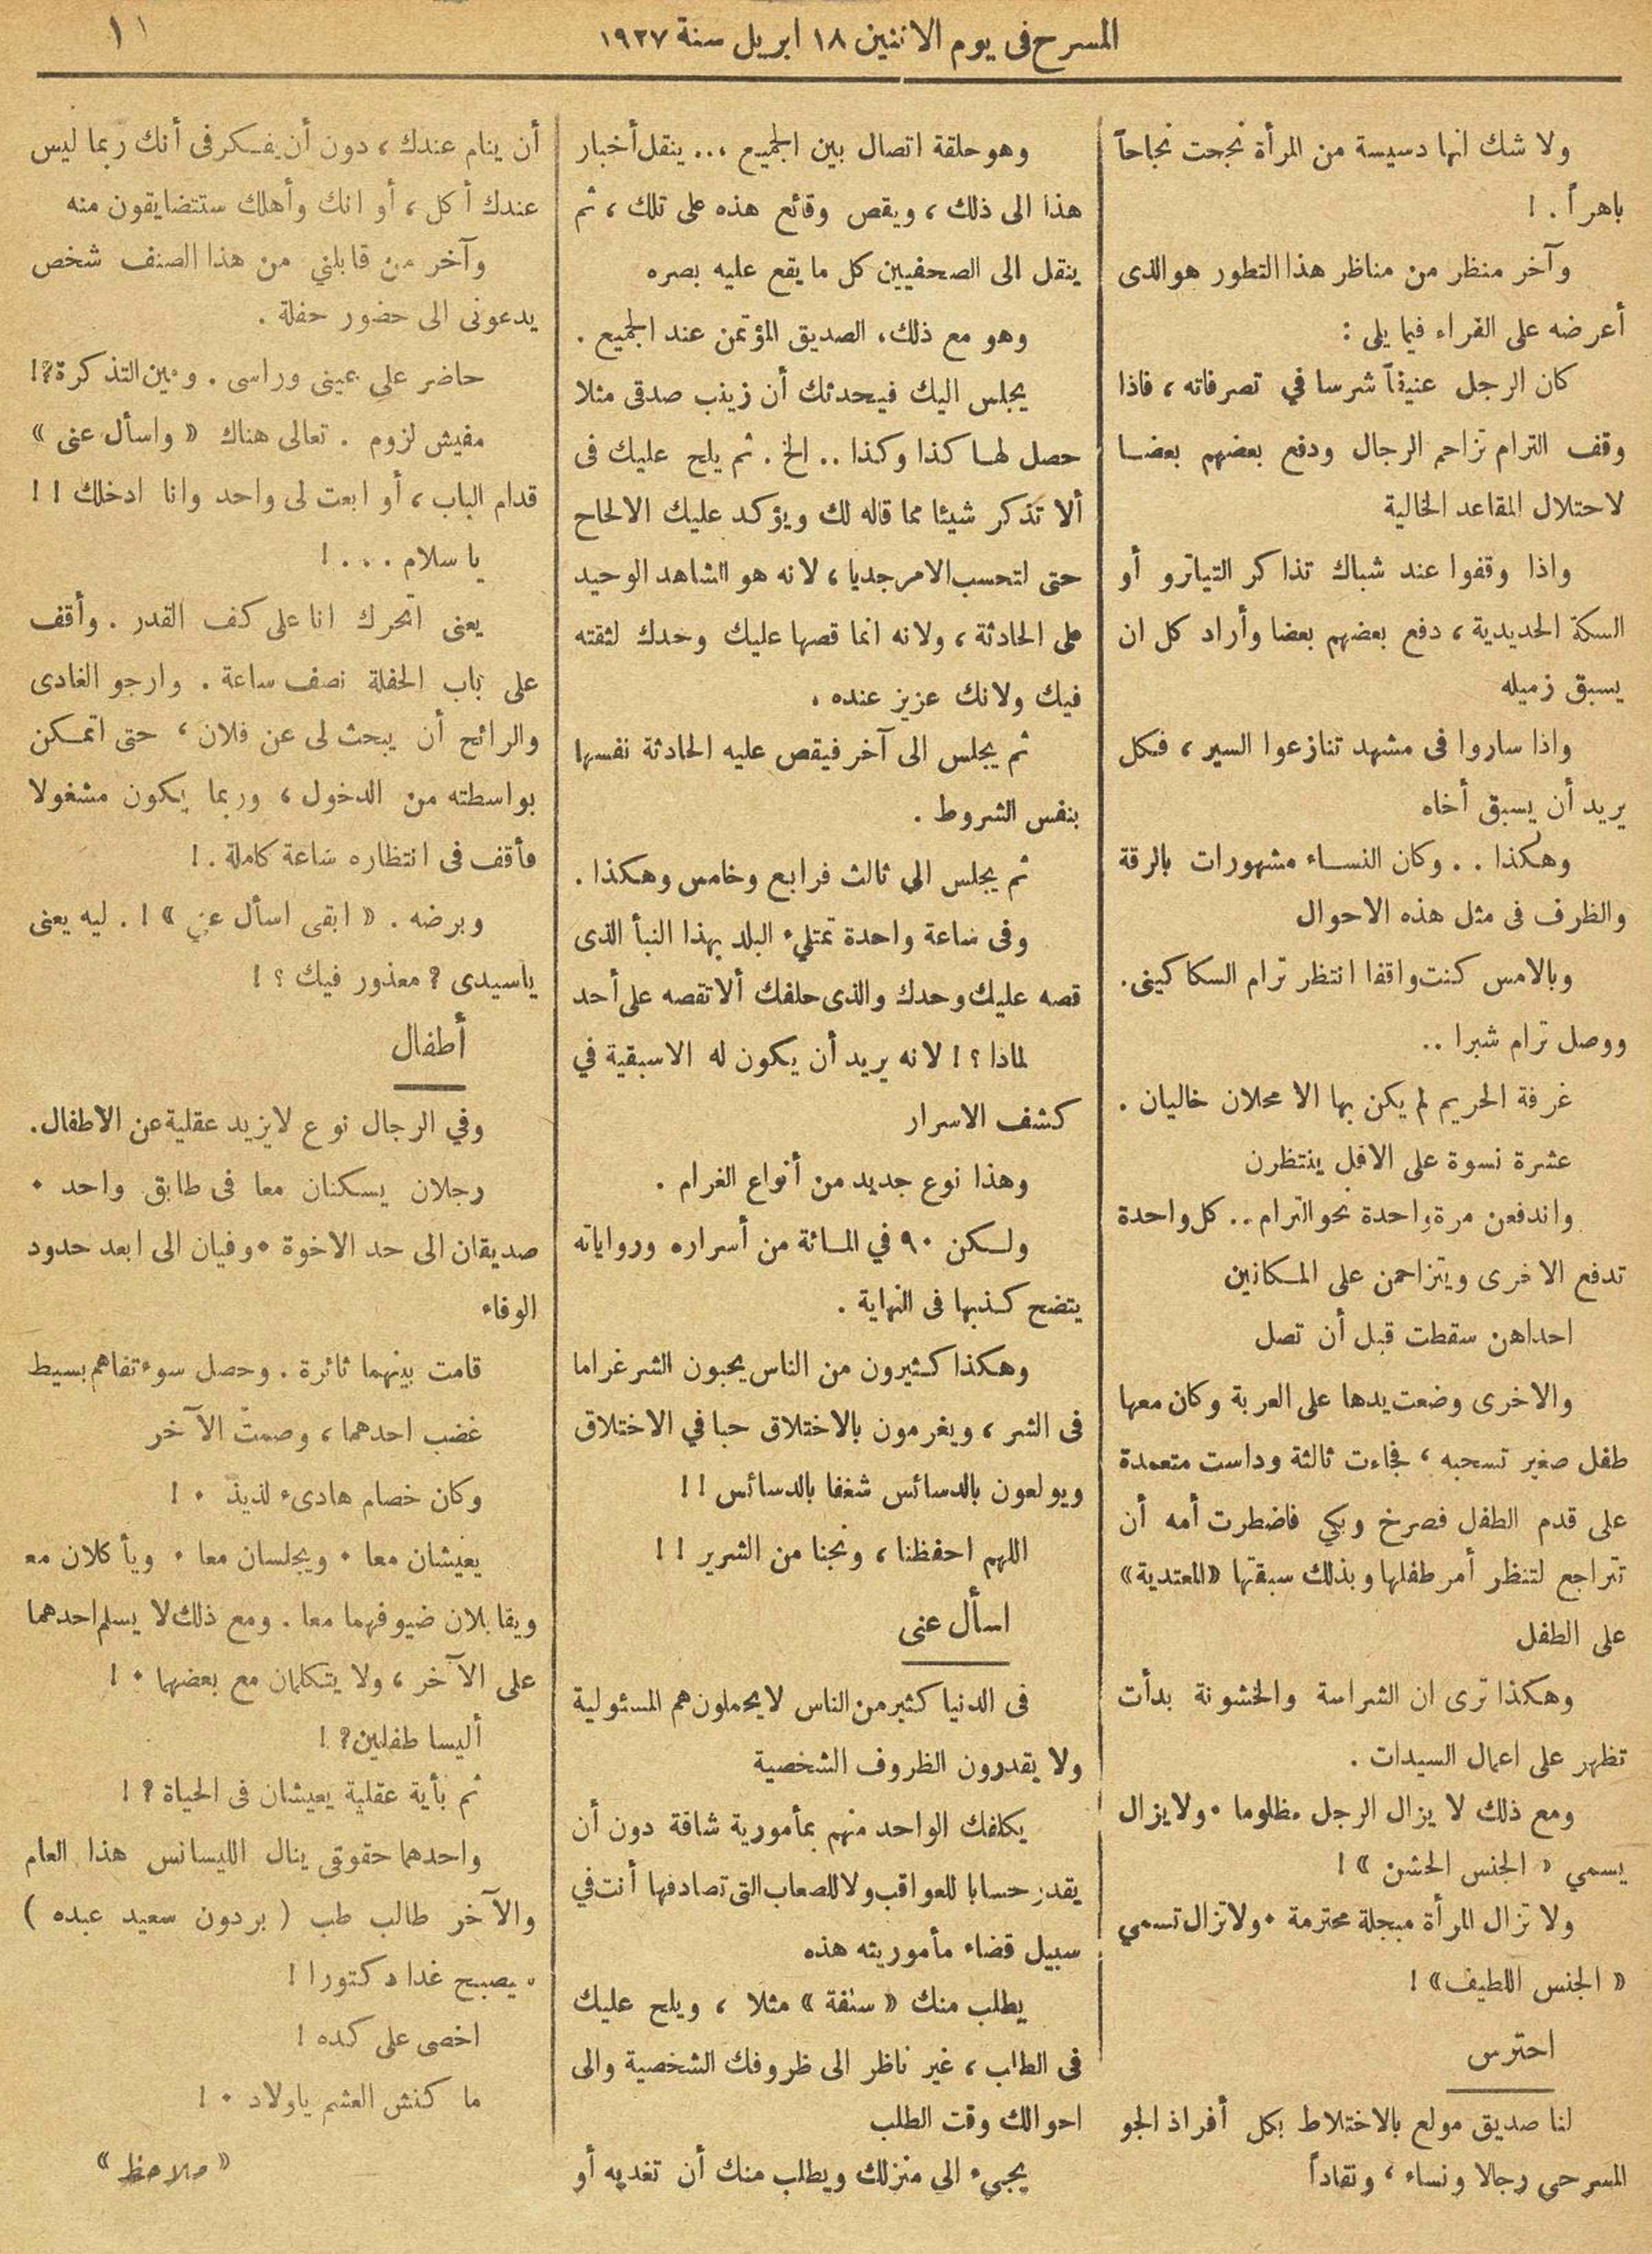 المسرح فى يوم الاثنين ١٨ ابريل سنة ١٩٢٧
١١
ولا شك انها دسيسة من المرأة نجحت نجاحاً
باهراً . !
وآخر منظر من مناظر هذا التطور هو الذى
أعرضه على القراء فيما يلى :
كان الرجل عنيفاً شرسا في تصرفاته ، فاذا
وقف الترام تزاحم الرجال ودفع بعضهم بعضا
لاحتلال المقاعد الخالية
واذا وقفوا عند شباك تذاكر التياترو أو
السكة الحديدية ، دفع بعضهم بعضا وأراد كل ان
يسبق زميله
واذا ساروا فى مشهد تنازعوا السير ، فكل
يريد أن يسبق أخاه
وهكذا . . وكان النساء مشهورات بالرقة
والظرف فى مثل هذه الاحوال
وبالامس كنت واقفا انتظر ترام السكاكينى .
ووصل ترام شبرا ..
غرفة الحريم لم يكن بها الا محلان خاليان .
عشرة نسوة على الاقل ينتظرن
واندفعن مرة واحدة نحو الترام .. كل واحدة
تدفع الاخرى ويتزاحمن على المكانين
احداهن سقطت قبل أن تصل
والاخرى وضعت يدها على العربة وكان معها
طفل صغير تسحبه ، فجاءت ثالثة وداست متعمدة
على قدم الطفل فصرخ وبكي فاضطرت أمه أن
تتراجع لتنظر أمر طفلها وبذلك سبقتها «المعتدية»
على الطفل
وهكذا ترى ان الشراسة والخشونة بدأت
تظهر على اعمال السيدات .
ومع ذلك لا يزال الرجل مظلوما . ولا يزال
يسمي « الجنس الخشن » !
ولا تزال المرأة مبجلة محترمة . ولا تزال تسمي
« الجنس اللطيف» !
احترس
لنا صديق مولع بالاختلاط بكل أفراد الجو
المسرحى رجالا ونساء ، ونقاداً
وهو حلقة اتصال بين الجميع ... ينقل أخبار
هذا الى ذلك ، ويقص وقائع هذه على تلك ، ثم
ينقل الى الصحفيين كل ما يقع عليه بصره
وهو مع ذلك ، الصديق المؤتمن عند الجميع .
يجلس اليك فيحدثك أن زينب صدقى مثلا
حصل لها كذا وكذا .. الخ . ثم يلح عليك فى
ألا تذكر شيئا مما قاله لك ويؤكد عليك الالحاح
حتى لتحسب الامر جديا ، لانه هو الشاهد الوحيد
على الحادثة ، ولانه انما قصها عليك وحدك لثقته
فيك ولانك عزيز عنده .
ثم يجلس الى آخر فيقص عليه الحادثة نفسها
بنفس الشروط .
ثم يجلس الي ثالث فرابع وخامس وهكذا .
وفى ساعة واحدة تمتليء البلد بهذا النبأ الذى
قصه عليك وحدك والذى حلفك ألا تقصه على أحد
لماذا ؟ ! لانه يريد أن يكون له الاسبقية في
كشف الاسرار
وهذا نوع جديد من أنواع الغرام .
ولكن ٩٠ في المائة من أسراره ورواياته
يتضح كذبها فى النهاية .
وهكذا كثيرون من الناس يحبون الشر غراما
فى الشر ، ويغرمون بالاختلاق حبا في الاختلاق
ويولعون بالدسائس شغفا بالدسائس ! !
اللهم احفظنا ، ونجنا من الشرير ! !
اسأل عنى
فى الدنيا كثير من الناس لا يحملون هم المسئولية
ولا يقدرون الظروف الشخصية
يكلفك الواحد منهم بمأمورية شاقة دون أن
يقدر حسابا للعواقب ولا للصعاب التى تصادفها أنت في
سبيل قضاء مأموريته هذه
يطلب منك « سلفة » مثلا ، ويلح عليك
فى الطلب ، غير ناظر الى ظروفك الشخصية والى
احوالك وقت الطلب
يجيء الي منزلك ويطلب منك أن تغديه أو
أن ينام عندك ، دون أن يفكر فى أنك ربما ليس
عندك أكل ، أو انك وأهلك ستتضايقون منه
وآخر من قابلني من هذا الصنف شخص
يدعونى الى حضور حفلة .
حاضر على عينى وراسى . وفين التذكرة؟!
مفيش لزوم . تعالى هناك « واسأل عنى »
قدام الباب ، أو ابعت لى واحد وانا ادخلك ! !
يا سلام . . . !
يعنى اتحرك انا على كف القدر . وأقف
على باب الحفلة نصف ساعة . وارجو الغادى
والرائح أن يبحث لى عن فلان ، حتى اتمكن
بواسطته من الدخول ، وربما يكون مشغولا
فأقف فى انتظاره ساعة كاملة . !
وبرضه . « ابقى اسأل عني » ! . ليه يعنى
ياسيدى ؟ معذور فيك ؟ !
أطفال
وفي الرجال نوع لايزيد عقلية عن الاطفال .
رجلان يسكنان معا فى طابق واحد .
صديقان الى حد الاخوة . وفيان الى ابعد حدود
الوفاء
قامت بينهما ثائرة . وحصل سوء تفاهم بسيط
غضب احدهما ، وصمت الآخر
وكان خصام هادىء لذيذ . !
يعيشان معا . ويجلسان معا . ويأكلان مع
ويقابلان ضيوفهما معا . ومع ذلك لا يسلم احدهما
على الآخر ، ولا يتكلمان مع بعضهما . !
أليسا طفلين ؟ !
ثم بأية عقلية يعيشان فى الحياة ؟ !
واحدهما حقوقى ينال الليسانس هذا العام
والآخر طالب طب ( بردون سعيد عبده )
. يصبح غدا دكتورا !
اخصى على كده !
ما كنش العشم ياولاد . !
« ملاحظ »